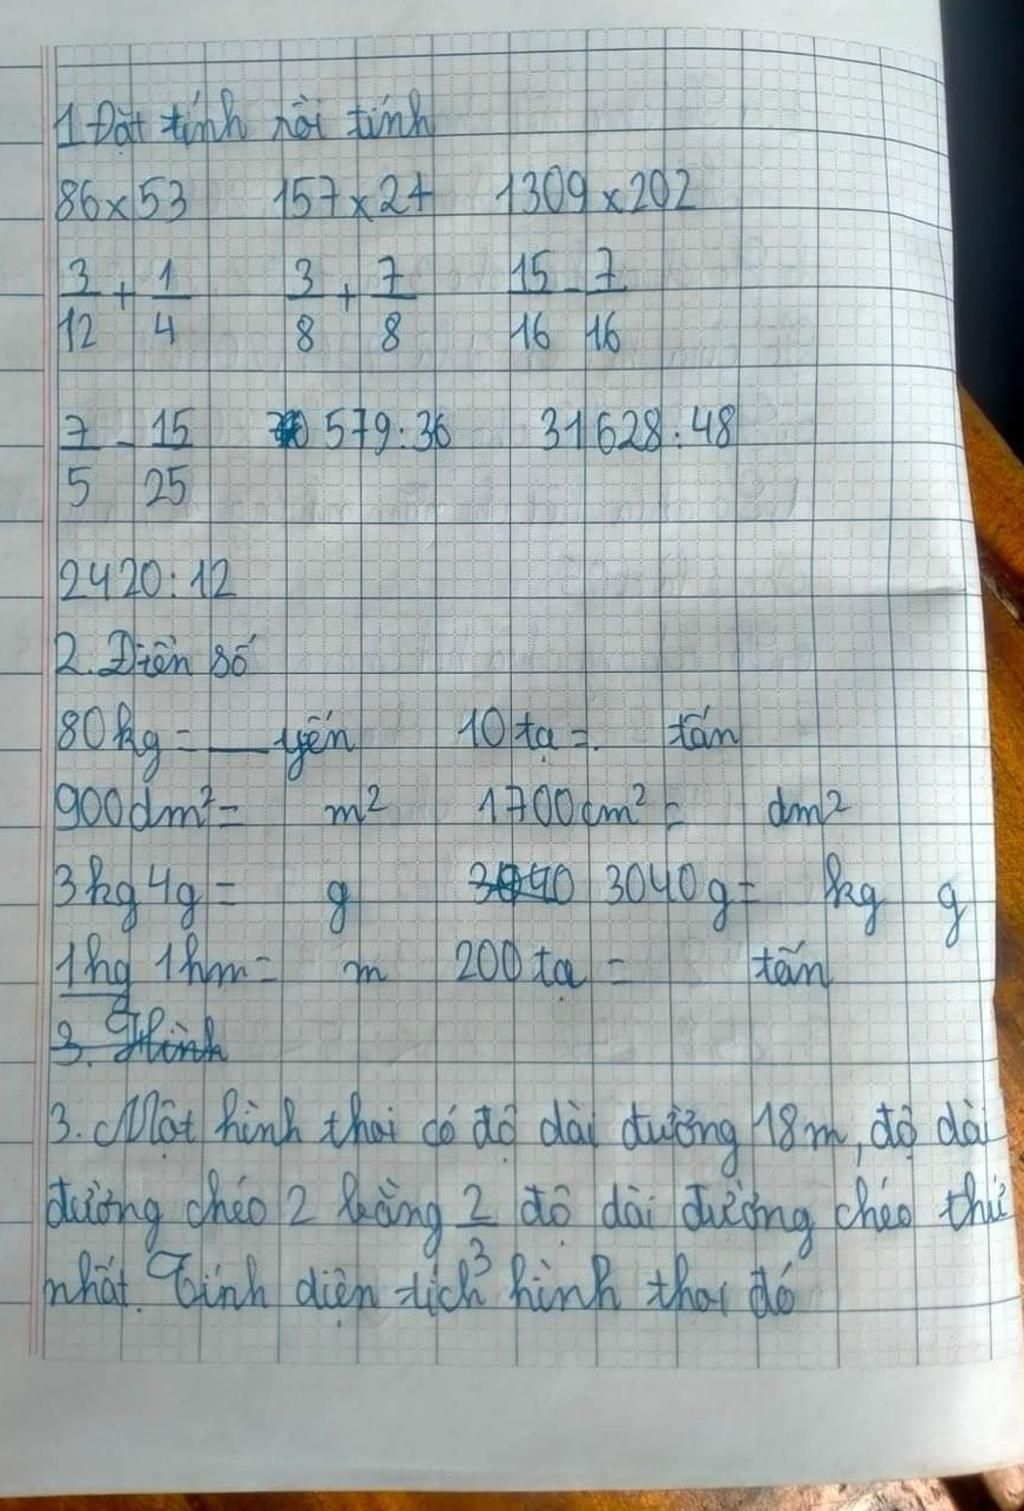 1. Đặt tính rồi tính
86 x 53 157 x 24 1309 x 202
3/12 + 1/4 3/8 + 7/8 15/16 - 7/16
7/5 - 15/25 579 : 36 31628 : 48
2420 : 12
2. Điền số
80kg = ___ yến 10 tạ = . tấn
900dm² = m² 1700cm² = dm²
3kg 4g = g 3040g = kg g
1hg 1hm = m 200 tạ = tấn
3. Hình
3. Một hình thoi có độ dài đường 18m, độ dài
đường chéo 2 bằng 2/3 độ dài đường chéo thứ
nhất. Tính diện tích hình thoi đó